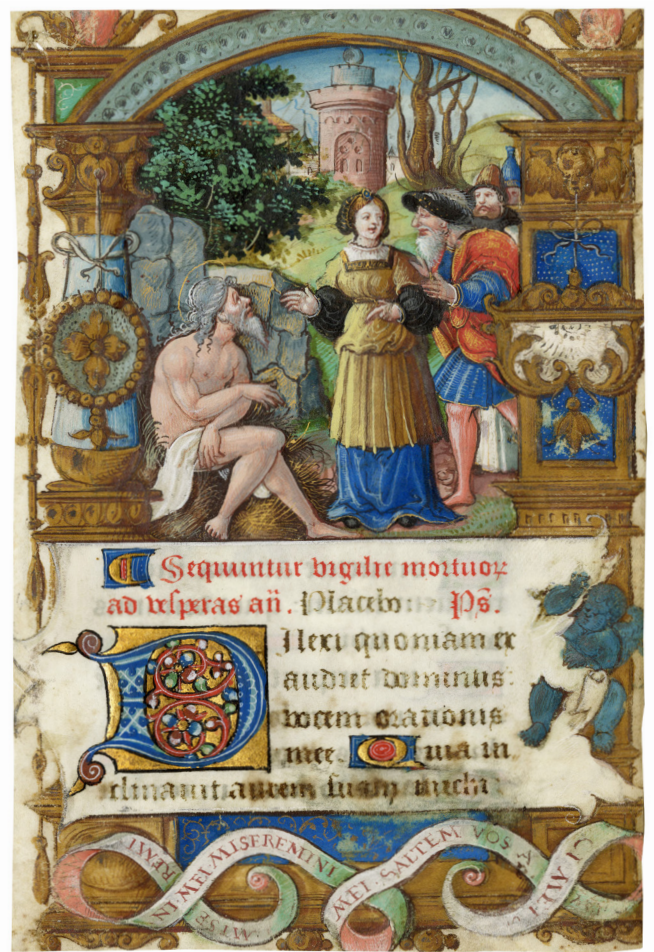 Sequuntur vigilie mortuoꝝ
ad vesperas an̄. Placebo Ps̄.
Dilexi quoniam ex
audiet dominus
vocem orationis
mee. Quia in
clinauit aurem suam michi
MISE REMI
INI MEI MISEREMINI
MEI SALTEM VOS A